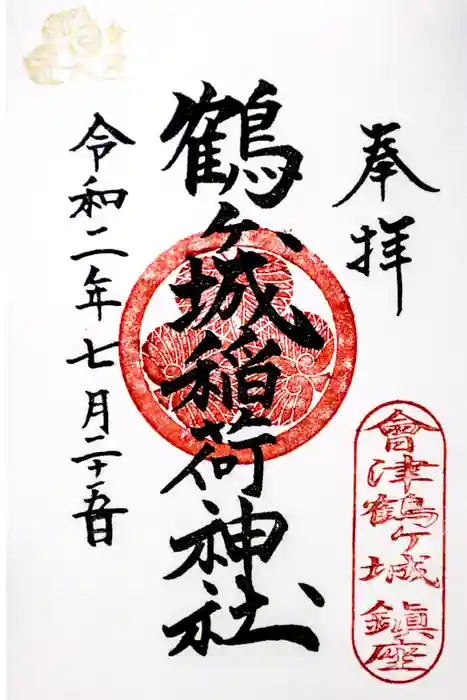 奉拝
會津鶴ヶ城鎮座
鶴ヶ城稲荷神社
令和二年七月二十五日